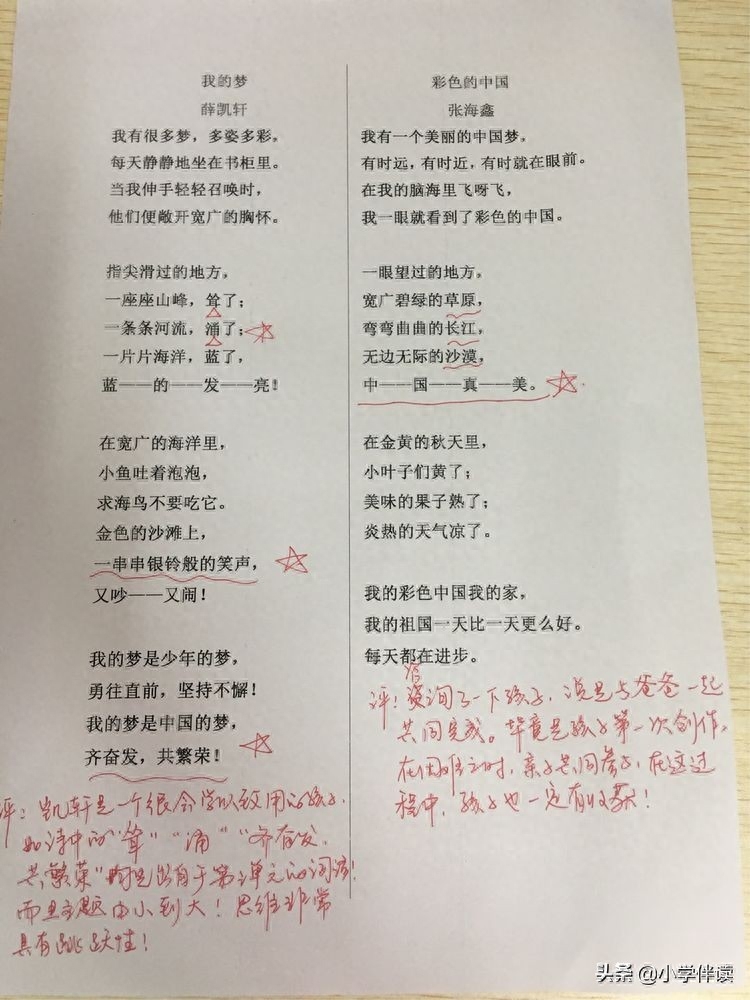 我的梦
薛凯轩
我有很多梦，多姿多彩。
每天静静地坐在书柜里。
当我伸手轻轻召唤时，
他们便敞开宽广的胸怀。
指尖滑过的地方，
一座座山峰，耸了；
一条条河流，涌了；
一片片海洋，蓝了，
蓝——的——发——亮！
在宽广的海洋里，
小鱼吐着泡泡，
求海鸟不要吃它。
金色的沙滩上，
一串串银铃般的笑声，
又吵——又闹！
我的梦是少年的梦，
勇往直前，坚持不懈！
我的梦是中国的梦，
齐奋发，共繁荣！
评：凯轩是一个很会学以致用的孩子，
如诗中的“耸”“涌”“齐奋发，
共繁荣”都是出自于第二单元的词语！
而且主题由小到大！思维非常
具有跳跃性！
彩色的中国
张海鑫
我有一个美丽的中国梦。
有时远，有时近，有时就在眼前。
在我的脑海里飞呀飞，
我一眼就看到了彩色的中国。
一眼望过的地方。
宽广碧绿的草原，
弯弯曲曲的长江，
无边无际的沙漠，
中——国——真——美。
在金黄的秋天里，
小叶子们黄了；
美味的果子熟了；
炎热的天气凉了。
我的彩色中国我的家，
我的祖国一天比一天更么好。
每天都在进步。
评：咨询了一下孩子，说是与爸爸一起
共同完成。毕竟是孩子第一次创作，
在困难之时，亲子共同参与，在这过
程中，孩子也一定有收获！
头条 @小学伴读